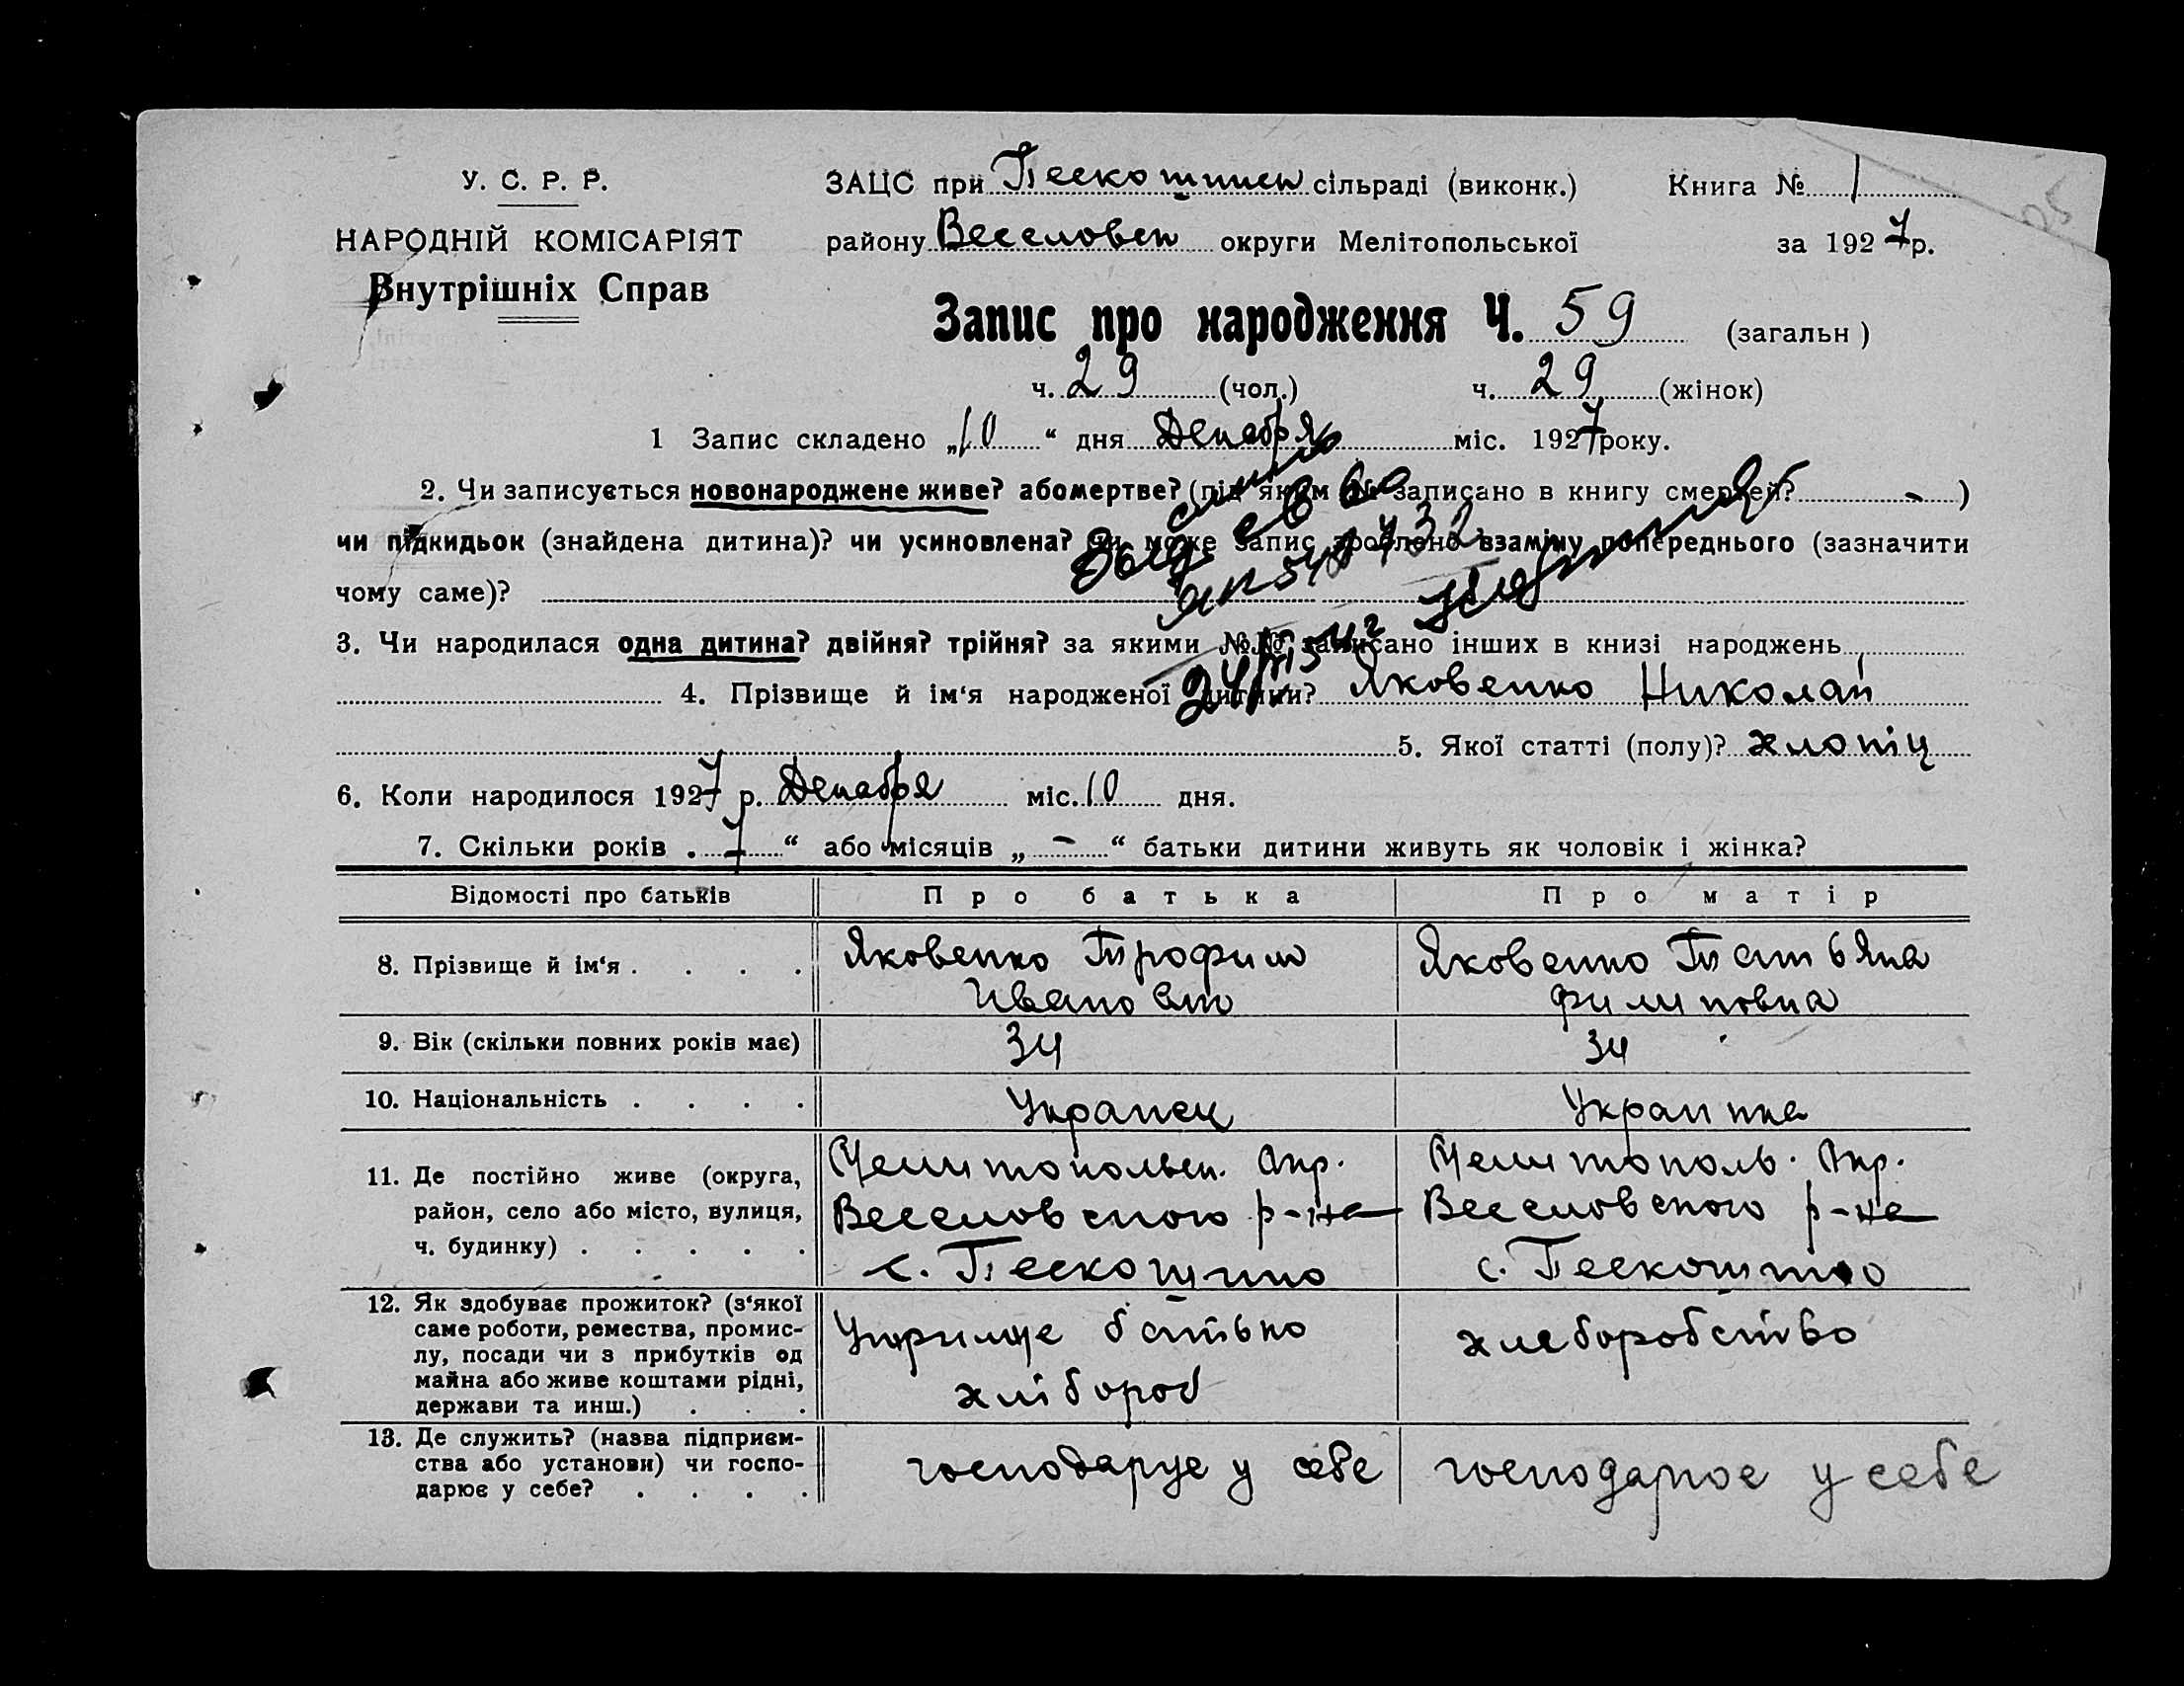 У. С. Р. Р.
НАРОДНІЙ КОМІСАРІЯТ
Внутрішніх Справ
ЗАЦС при Пескошинск сільраді (виконк.) Книга № 1
району Веселовск округи Мелітопольської за 1927 р.
Запис про народження Ч. 59 (загальн)
ч. 29 (чол.) ч. 29 (жінок)
1 Запис складено „10“ дня Декабря міс. 1927 року.
2. Чи записується новонароджене живе? або мертве? (під яким № записано в книгу смертей? - )
чи підкидьок (знайдена дитина)? чи усиновлена? Чи може запис зроблено взаміну попереднього (зазначити
чому саме)?
3. Чи народилася одна дитина? двійня? трійня? за якими №№ записано інших в книзі народжень
4. Прізвище й ім‘я народженої дитини? Яковенко Николай
5. Якої статті (полу)? хлопіц
6. Коли народилося 1927 р. Декабря міс. 10 дня.
7. Скільки років 7“ або місяців „-“ батьки дитини живуть як чоловік і жінка?
Відомості про батьків Про батька Про матір
8. Прізвище й ім‘я . . . . Яковенко Трофим Яковенко Татьяна
Филиповна
9. Вік (скільки повних років має) 34 34
10. Національність . . . . Украпец Украинка
11. Де постійно живе (округа,
район, село або місто, вулиця,
ч. будинку) . . . . .
Мелитопольск. Окр.
Веселовского р-на
с. Пескошино
Мелитополь. Окр.
Веселовского р-на
с.
12. Як здобуває прожиток? (з‘якої
саме роботи, ремества, промис-
лу, посади чи з прибутків од
майна або живе коштами рідні,
держави та инш.) . . .
батько
хлібороб
хлеборобство
13. Де служить? (назва підприєм-
ства або установи) чи госпо-
дарює у себе? . . . .
господаруе у себе
господарюе у себе